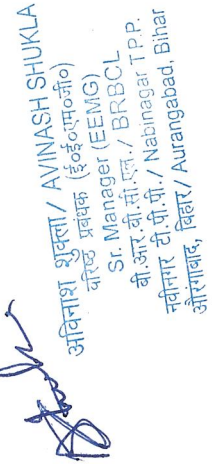 अविनाश शुक्ला / AVINASH SHUKLA
वरिष्ठ प्रबंधक (ई०ई०एम०जी०)
Sr. Manager (EEMG)
बी.आर.बी.सी.एल. / BRBCL
नवीनगर टी.पी.पी. / Nabinagar T.P.P.
औरंगाबाद, बिहार / Aurangabad, Bihar